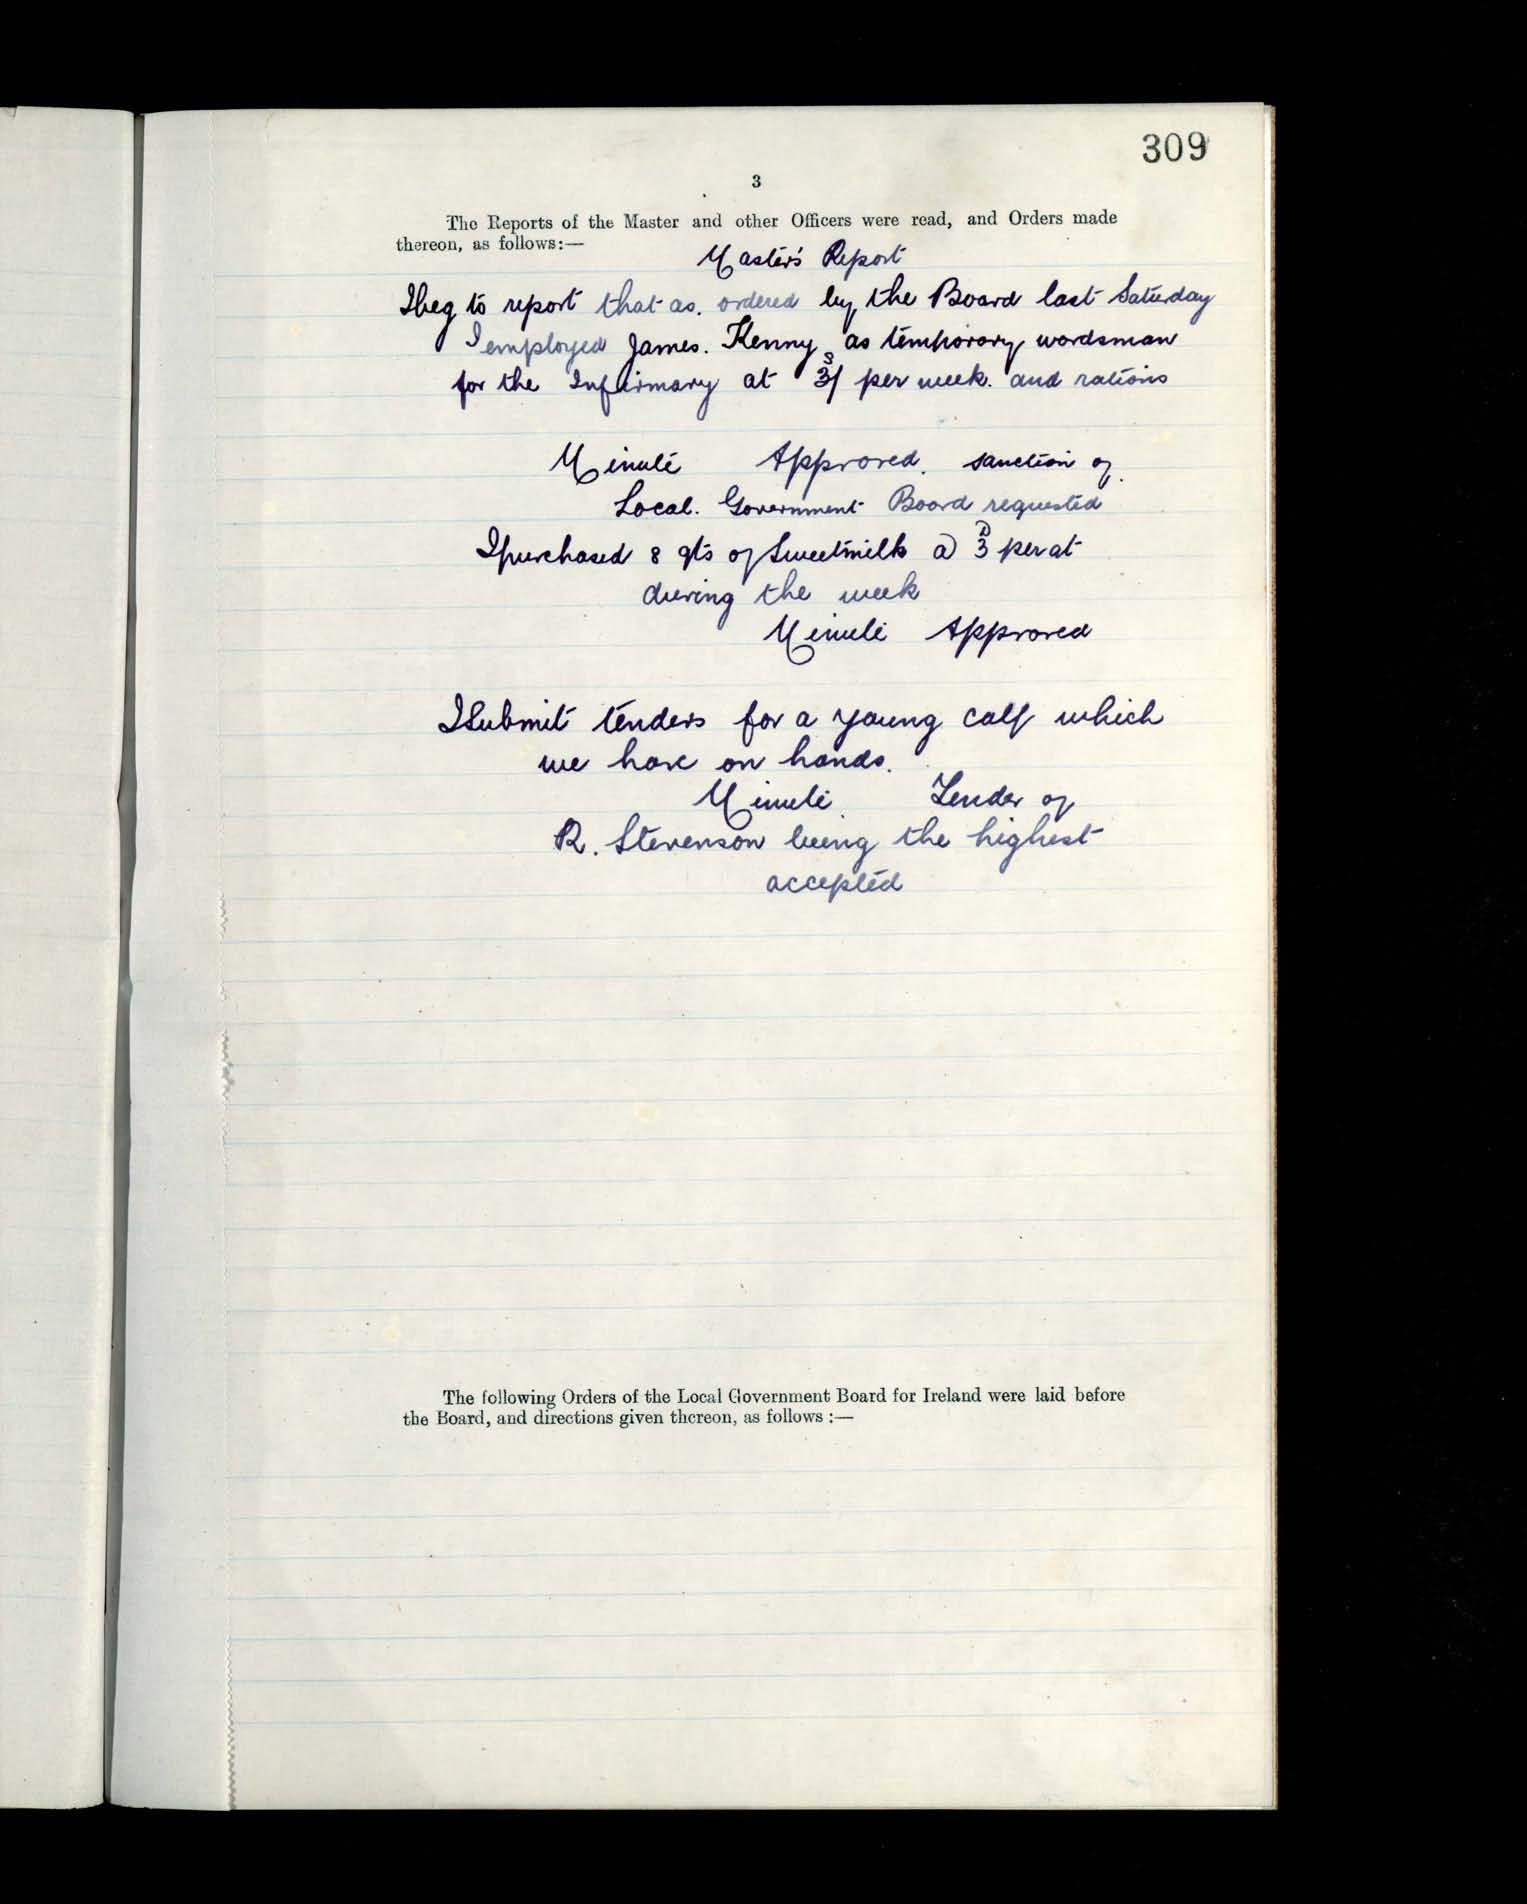 309
3
The Reports of the Master and other Officers were read, and Orders made
thereon, as follows:—
Master's Report
I beg to report that as. ordered by the Board last Saturday
I employed James. Kenny as temporary wardsman
for the Infirmary at 3/ S per week. and rations
Minute Approved. sanction of
Local. Government Board requested
I purchased 8 qts of Sweetmilk @ 3 D per qt
during the week
Minute Approved
I Submit tenders for a young calf which
we have on hands.
Minute Tender of
R. Stevenson being the highest
accepted
The following Orders of the Local Government Board for Ireland were laid before
the Board, and directions given thereon, as follows :—